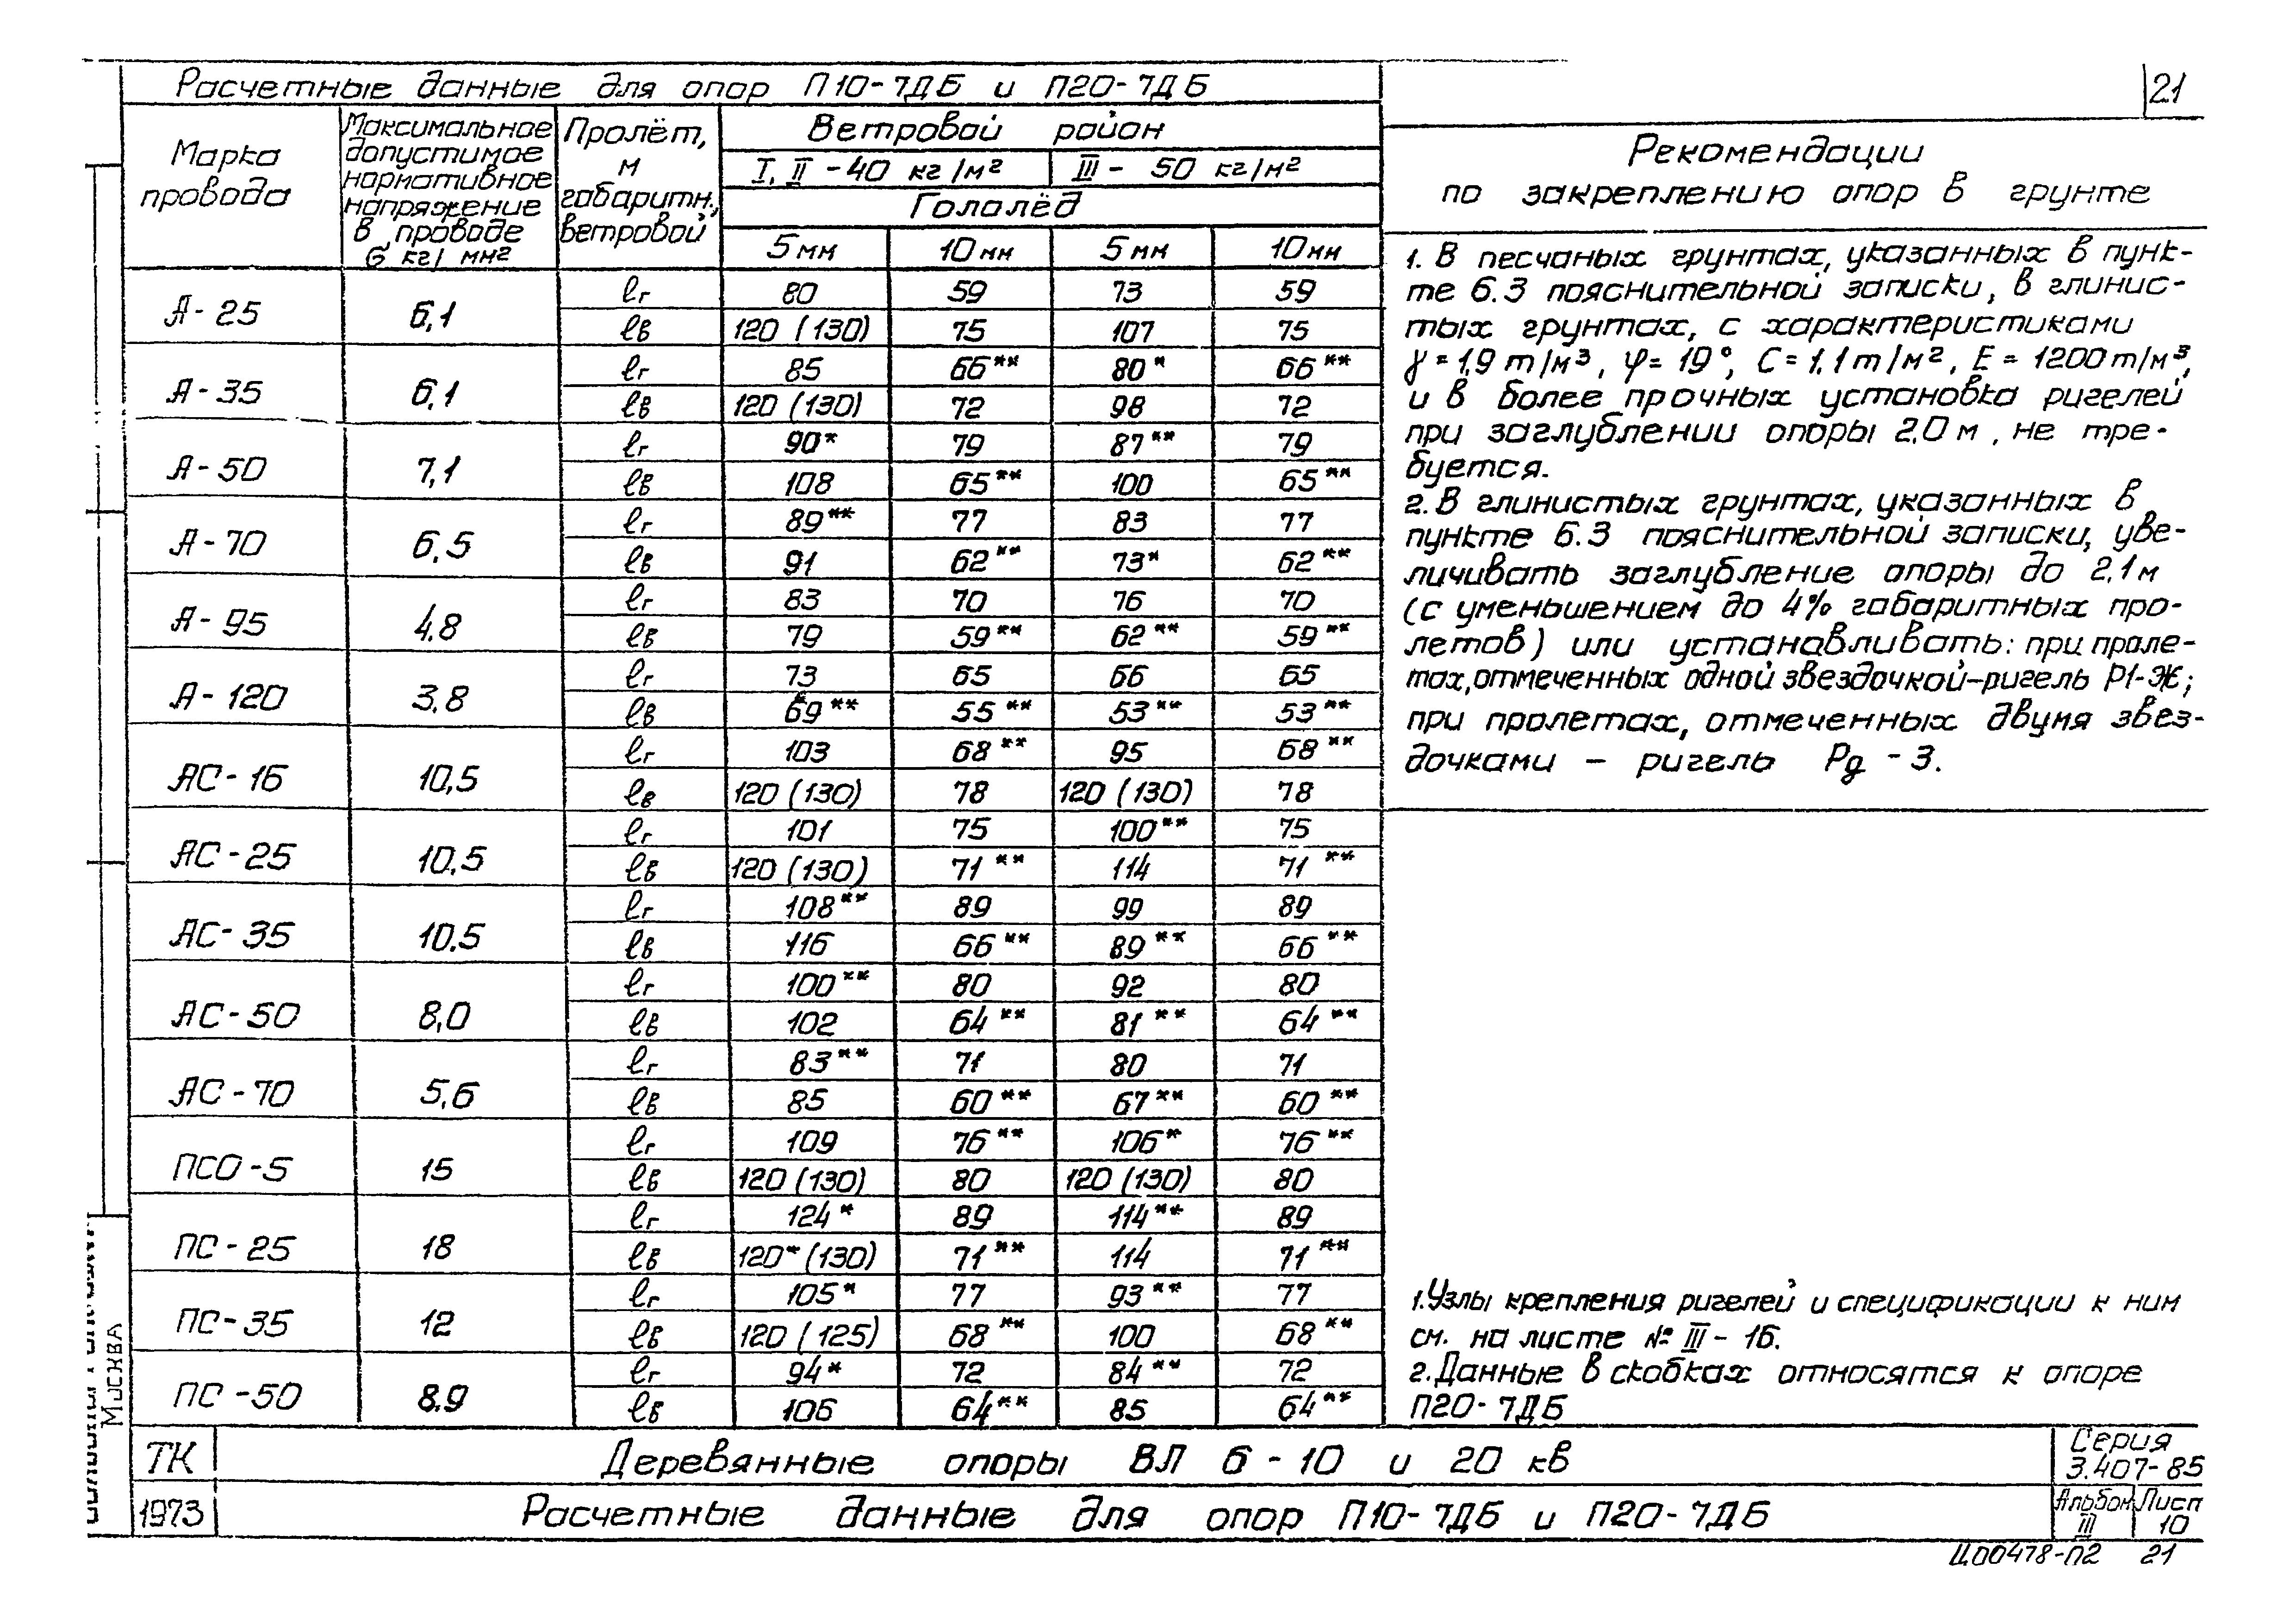 21
Расчетные данные для опор П10-7ДБ и П20-7ДБ
Марка провода | Максимальное допустимое нормативное напряжение в проводе σ кг/мм² | Пролёт, м габаритн., ветровой | Ветровой район
I, II - 40 кг/м² | III - 50 кг/м²
Гололёд
5 мм | 10 мм | 5 мм | 10 мм
А-25 | 6,1 | lг | 80 | 59 | 73 | 59
lв | 120 (130) | 75 | 107 | 75
А-35 | 6,1 | lг | 85 | 66** | 80* | 66**
lв | 120 (130) | 72 | 98 | 72
А-50 | 7,1 | lг | 90* | 79 | 87** | 79
lв | 108 | 65** | 100 | 65**
А-70 | 6,5 | lг | 89** | 77 | 83 | 77
lв | 91 | 62** | 73* | 62**
А-95 | 4,8 | lг | 83 | 70 | 76 | 70
lв | 79 | 59** | 62** | 59**
А-120 | 3,8 | lг | 73 | 65 | 66 | 65
lв | 69** | 55** | 53** | 53**
АС-16 | 10,5 | lг | 103 | 68** | 95 | 68**
lв | 120 (130) | 78 | 120 (130) | 78
АС-25 | 10,5 | lг | 101 | 75 | 100** | 75
lв | 120 (130) | 71** | 114 | 71**
АС-35 | 10,5 | lг | 108** | 89 | 99 | 89
lв | 116 | 66** | 89** | 66**
АС-50 | 8,0 | lг | 100** | 80 | 92 | 80
lв | 102 | 64** | 81** | 64**
АС-70 | 5,6 | lг | 83** | 71 | 80 | 71
lв | 85 | 60** | 67** | 60**
ПСО-5 | 15 | lг | 109 | 76** | 106* | 76**
lв | 120 (130) | 80 | 120 (130) | 80
ПС-25 | 18 | lг | 124* | 89 | 114** | 89
lв | 120* (130) | 71** | 114 | 71**
ПС-35 | 12 | lг | 105* | 77 | 93** | 77
lв | 120 (125) | 68** | 100 | 68**
ПС-50 | 8.9 | lг | 94* | 72 | 84** | 72
lв | 106 | 64** | 85 | 64**
Рекомендации
по закреплению опор в грунте
1. В песчаных грунтах, указанных в пунк-
те 6.3 пояснительной записки, в глинис-
тых грунтах, с характеристиками
γ = 1,9 т/м³, φ = 19°, С = 1,1 т/м², Е = 1200 т/м³,
и в более прочных установка ригелей
при заглублении опоры 2,0 м, не тре-
буется.
2. В глинистых грунтах, указанных в
пункте 6.3 пояснительной записки, уве-
личивать заглубление опоры до 2,1 м
(с уменьшением до 4% габаритных про-
летов) или устанавливать: при проле-
тах, отмеченных одной звездочкой-ригель Р1-Ж;
при пролетах, отмеченных двумя звез-
дочками - ригель Рд - 3.
1. Узлы крепления ригелей и спецификации к ним
см. на листе № III - 16.
2. Данные в скобках относятся к опоре
П20-7ДБ
Москва
ТК
1973
Деревянные опоры ВЛ 6-10 и 20 кв
Расчетные данные для опор П10-7ДБ и П20-7ДБ
Серия
3.407-85
Альбом III
Лист 10
Ц00478-02 21